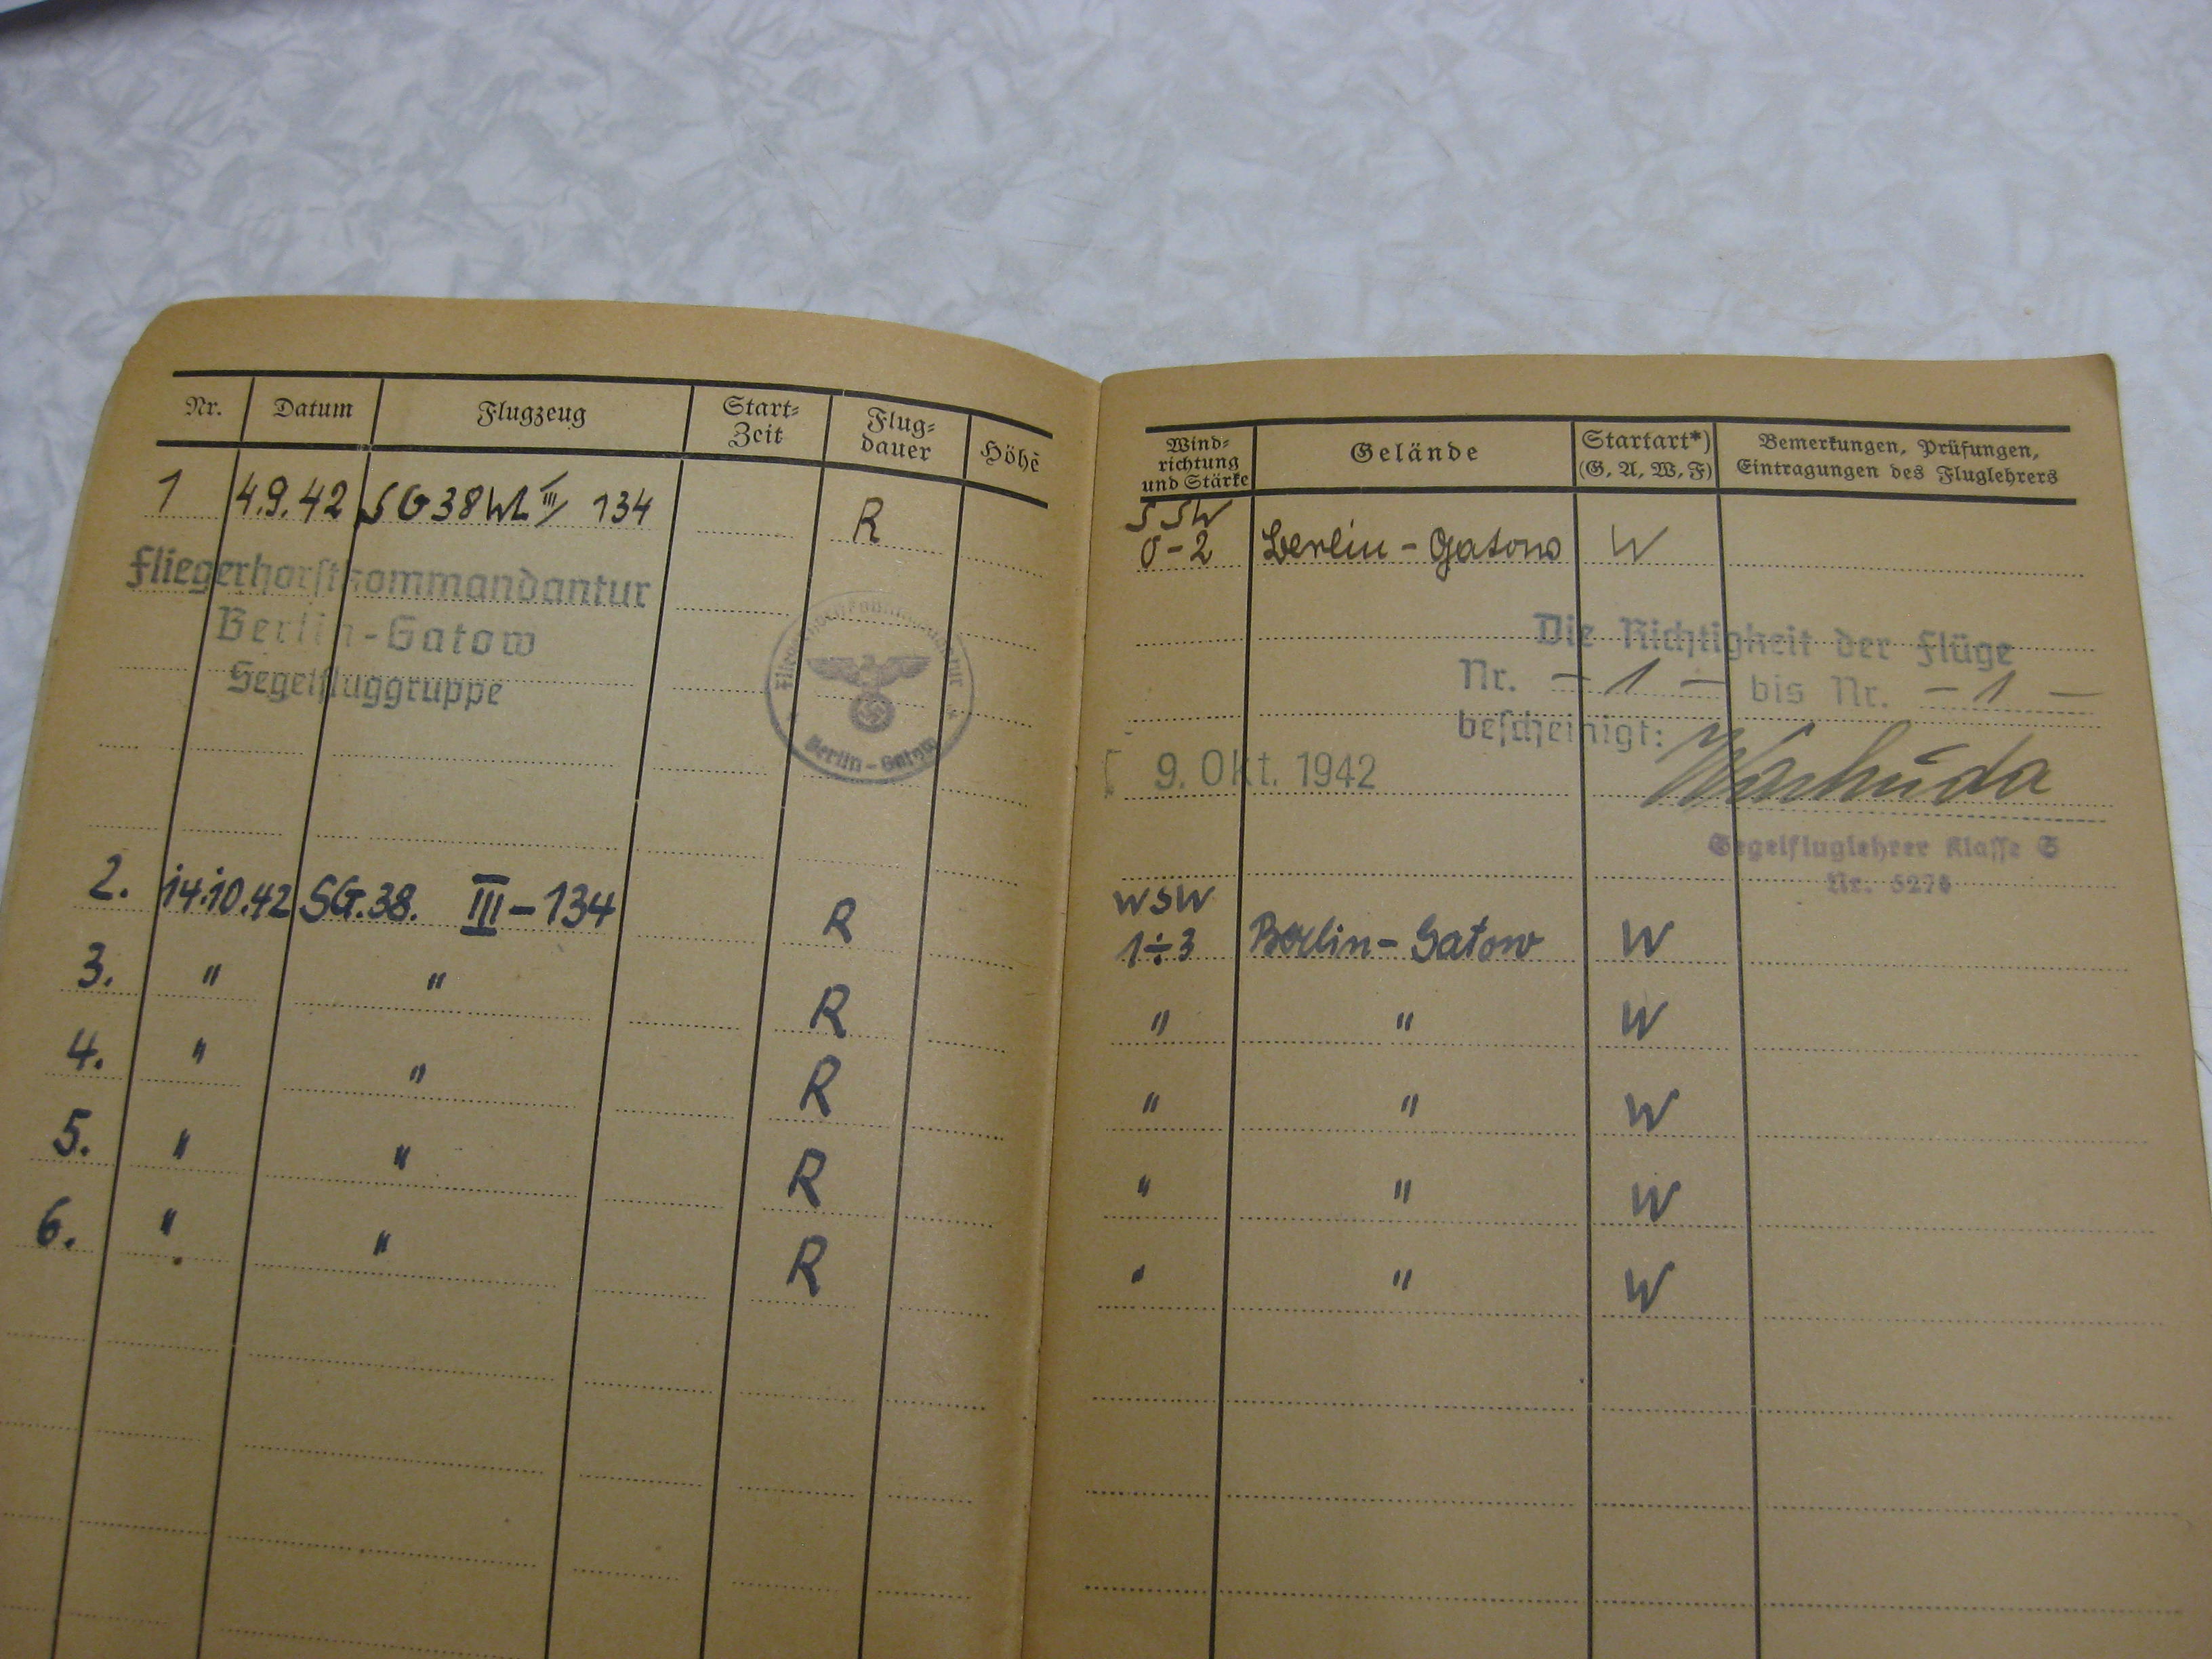 Nr. Datum Flugzeug Start= Zeit Flug= dauer Höhe
1 4.9.42 SG38WL III/ 134 R
Fliegerhorstkommandantur
Berlin-Gatow
Segelfluggruppe
Fliegerhorstkommandantur
Berlin-Gatow
2. 14.10.42 SG.38. III-134 R
3. " " R
4. " " R
5. " " R
6. " " R
Wind= richtung und Stärke Gelände Startart*) (G, A, W, F) Bemerkungen, Prüfungen, Eintragungen des Fluglehrers
SSW
0-2 Berlin-Gatow W
Die Richtigkeit der Flüge
Nr. - 1 - bis Nr. - 1 -
bescheinigt:
9. Okt. 1942
Segelfluglehrer Klasse S
Nr.
WSW
1÷3 Berlin-Gatow W
" " W
" " W
" " W
" " W